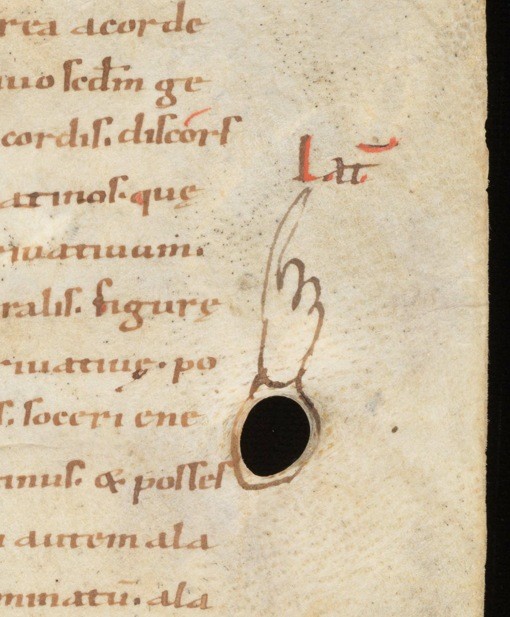 rea acorde
uo sedm̄ ge
cordis. discórs
atinos. quę
riuatiuum.
ralis. figurę
riuatiuę. po
s. soceri ene
inus. & posses
autem ala
minatū. ala
Lat̄